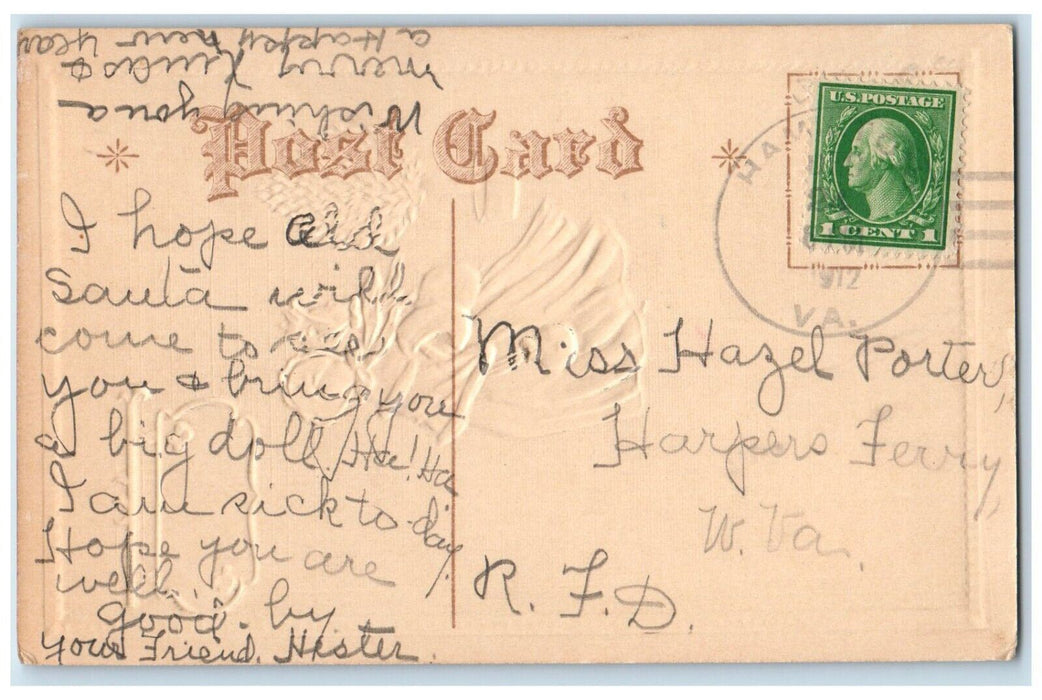 Wishing you a
Merry Xmas &
a Happy new year
Post Card
U.S. POSTAGE
1 CENT 1
1912
VA.
I hope old
Santa will
come to see
you & bring you
a big doll. Ha! Ha
I am sick to-day.
Hope you are
well.
good-by
your Friend, Hester.
Miss Hazel Porter,
Harpers Ferry,
W. Va.
R. F. D.